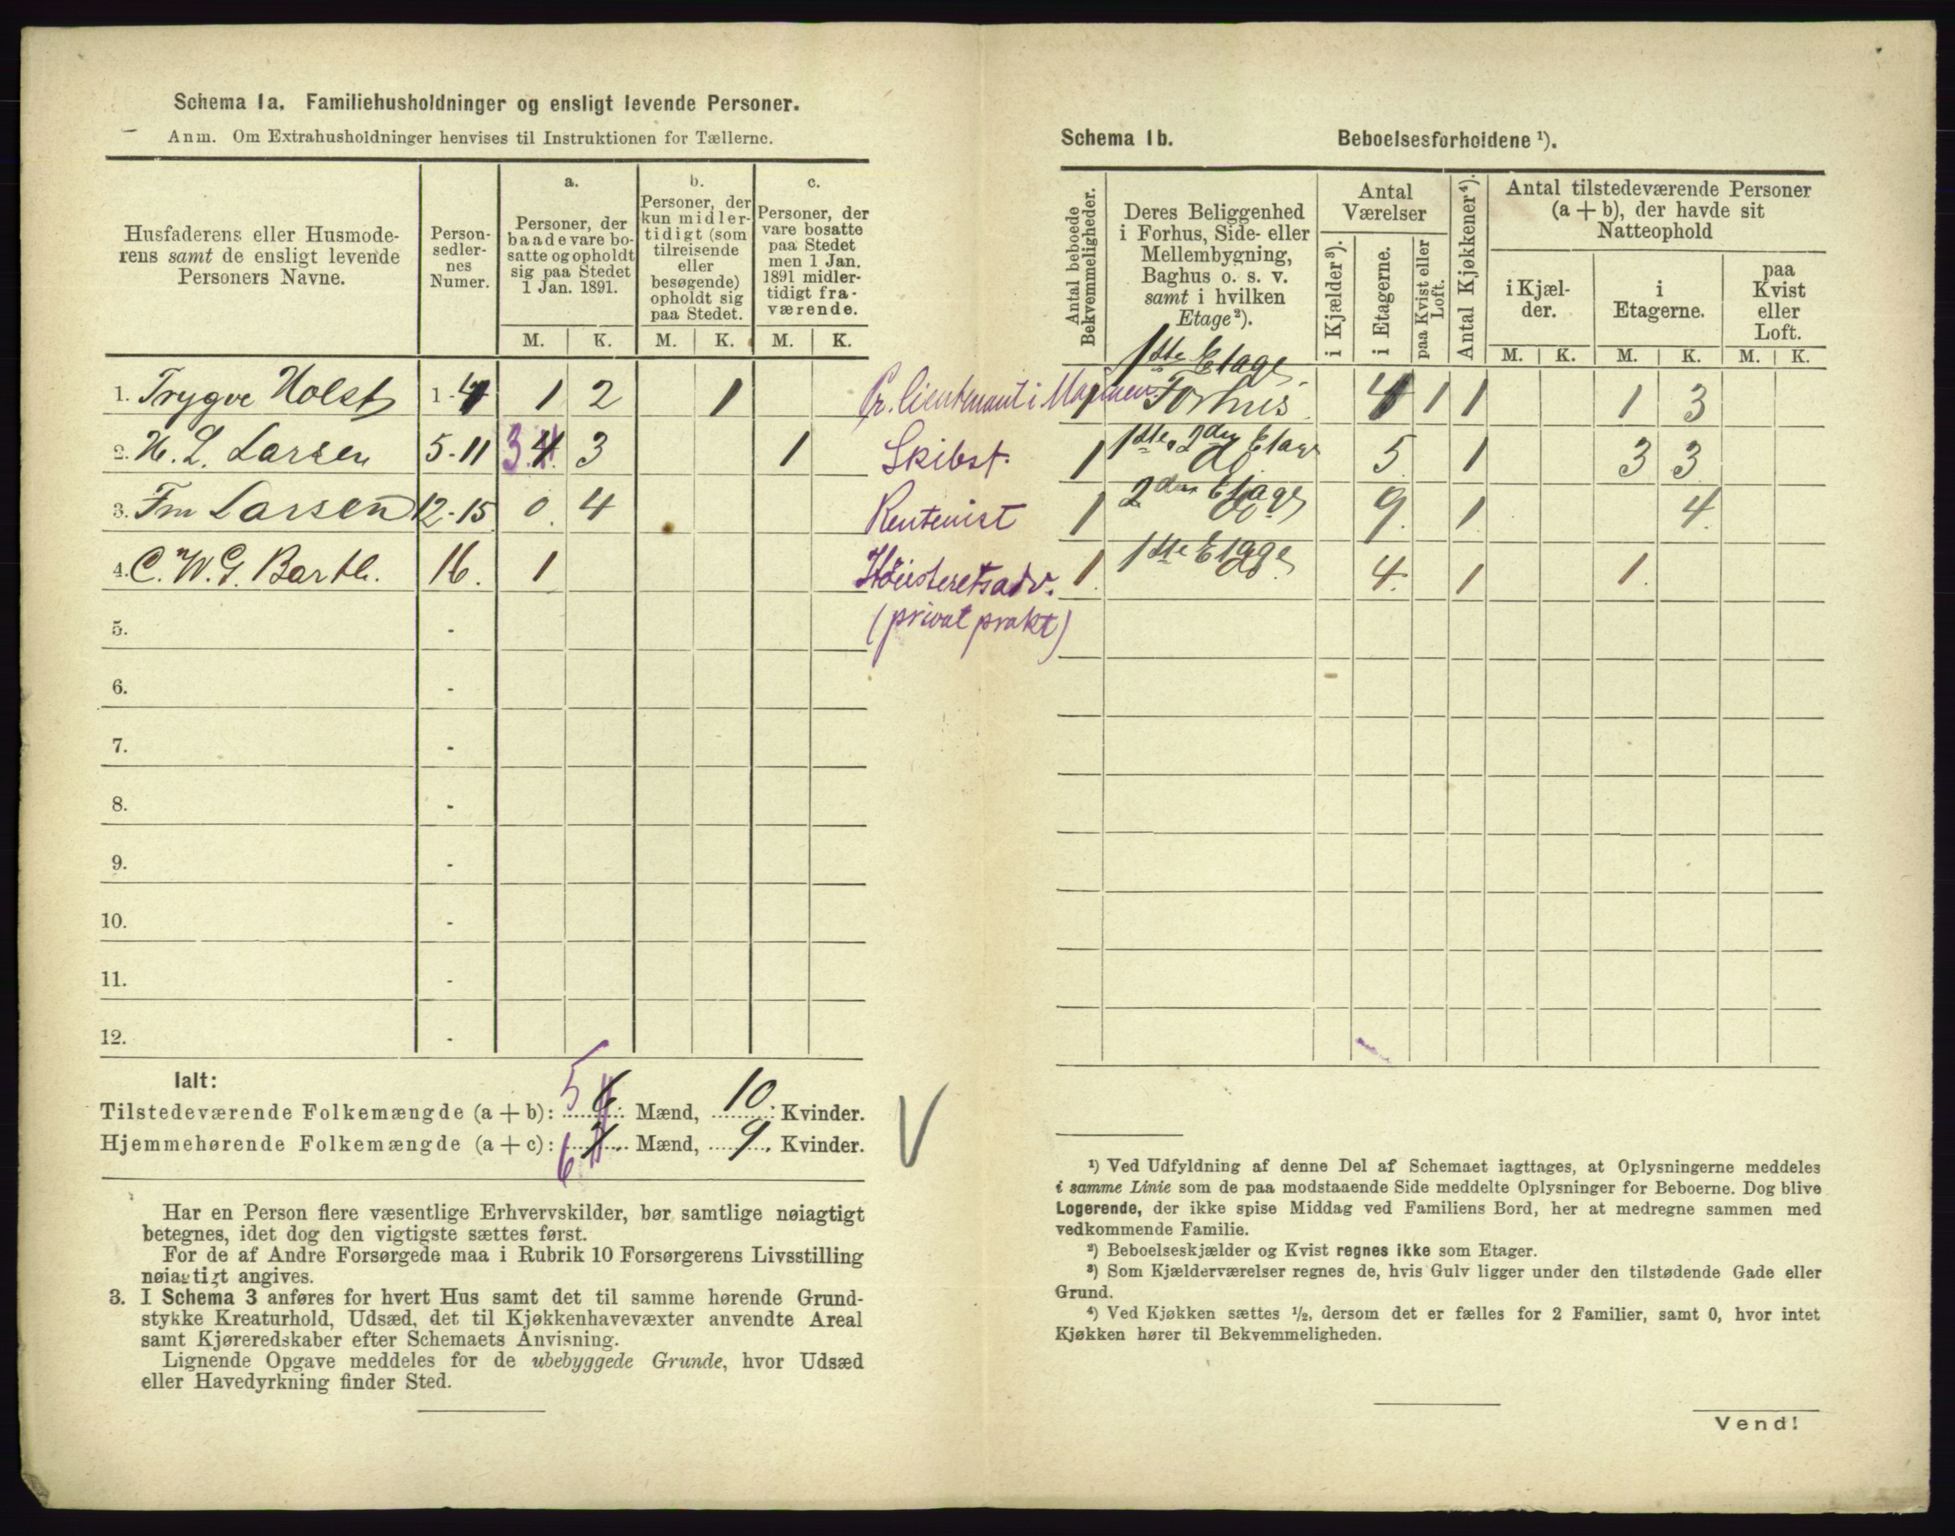 Schema 1a. Familiehusholdninger og ensligt levende Personer.
Anm. Om Extrahusholdninger henvises til Instruktionen for Tællerne.
Husfaderens eller Husmode-
rens samt de ensligt levende
Personers Navne.
Person-
sedler-
nes
Numer.
a.
Personer, der
baade vare bo-
satte og opholdt
sig paa Stedet
1 Jan. 1891.
b.
Personer, der
kun midler-
tidigt (som
tilreisende
eller
besøgende)
opholdt sig
paa Stedet.
c.
Personer, der
vare bosatte
paa Stedet
men 1 Jan.
1891 midler-
tidigt fra-
værende.
M. K. M. K. M. K.
1. Trygve Holst 1-4 1 2 1 Pr. lieutenant i Marinen
2. H. L. Larsen 5-11 3 4. 3 1 Skibst.
3. Fru Larsen 12-15 0. 4 Rentenist
4. C. W. G. Barth. 16. 1 Høiesteretsadv.
(privat prakt)
5. -
6. -
7. -
8. -
9. -
10. -
11. -
12. -
Ialt:
Tilstedeværende Folkemængde (a + b): 5 6 Mænd, 10 Kvinder.
Hjemmehørende Folkemængde (a + c): 6 7 Mænd, 9 Kvinder.
V
Har en Person flere væsentlige Erhvervskilder, bør samtlige nøiagtigt
betegnes, idet dog den vigtigste sættes først.
For de af Andre Forsørgede maa i Rubrik 10 Forsørgerens Livsstilling
nøiagtigt angives.
3. I Schema 3 anføres for hvert Hus samt det til samme hørende Grund-
stykke Kreaturhold, Udsæd, det til Kjøkkenhavevæxter anvendte Areal
samt Kjøreredskaber efter Schemaets Anvisning.
Lignende Opgave meddeles for de ubebyggede Grunde, hvor Udsæd
eller Havedyrkning finder Sted.
Schema 1b. Beboelsesforholdene ¹).
Antal beboede
Bekvemmeligheder.
Deres Beliggenhed
i Forhus, Side- eller
Mellembygning,
Baghus o. s. v.
samt i hvilken
Etage²).
Antal
Værelser
i Kjælder³).
i Etagerne.
paa Kvist eller
Loft.
Antal Kjøkkener⁴).
Antal tilstedeværende Personer
(a + b), der havde sit
Natteophold
i Kjæl-
der.
i
Etagerne.
paa
Kvist
eller
Loft.
M. K. M. K. M. K.
1ste Etage
1 Forhus. 4 1 1 1 3
1ste, 2den Etage
1 do 5. 1 3 3
2den Etage
1 do 9. 1. 4.
1ste Etage
1. do 4. 1 1.
¹) Ved Udfyldning af denne Del af Schemaet iagttages, at Oplysningerne meddeles
i samme Linie som de paa modstaaende Side meddelte Oplysninger for Beboerne. Dog blive
Logerende, der ikke spise Middag ved Familiens Bord, her at medregne sammen med
vedkommende Familie.
²) Beboelseskjælder og Kvist regnes ikke som Etager.
³) Som Kjælderværelser regnes de, hvis Gulv ligger under den tilstødende Gade eller
Grund.
⁴) Ved Kjøkken sættes ½, dersom det er fælles for 2 Familier, samt 0, hvor intet
Kjøkken hører til Bekvemmeligheden.
Vend!